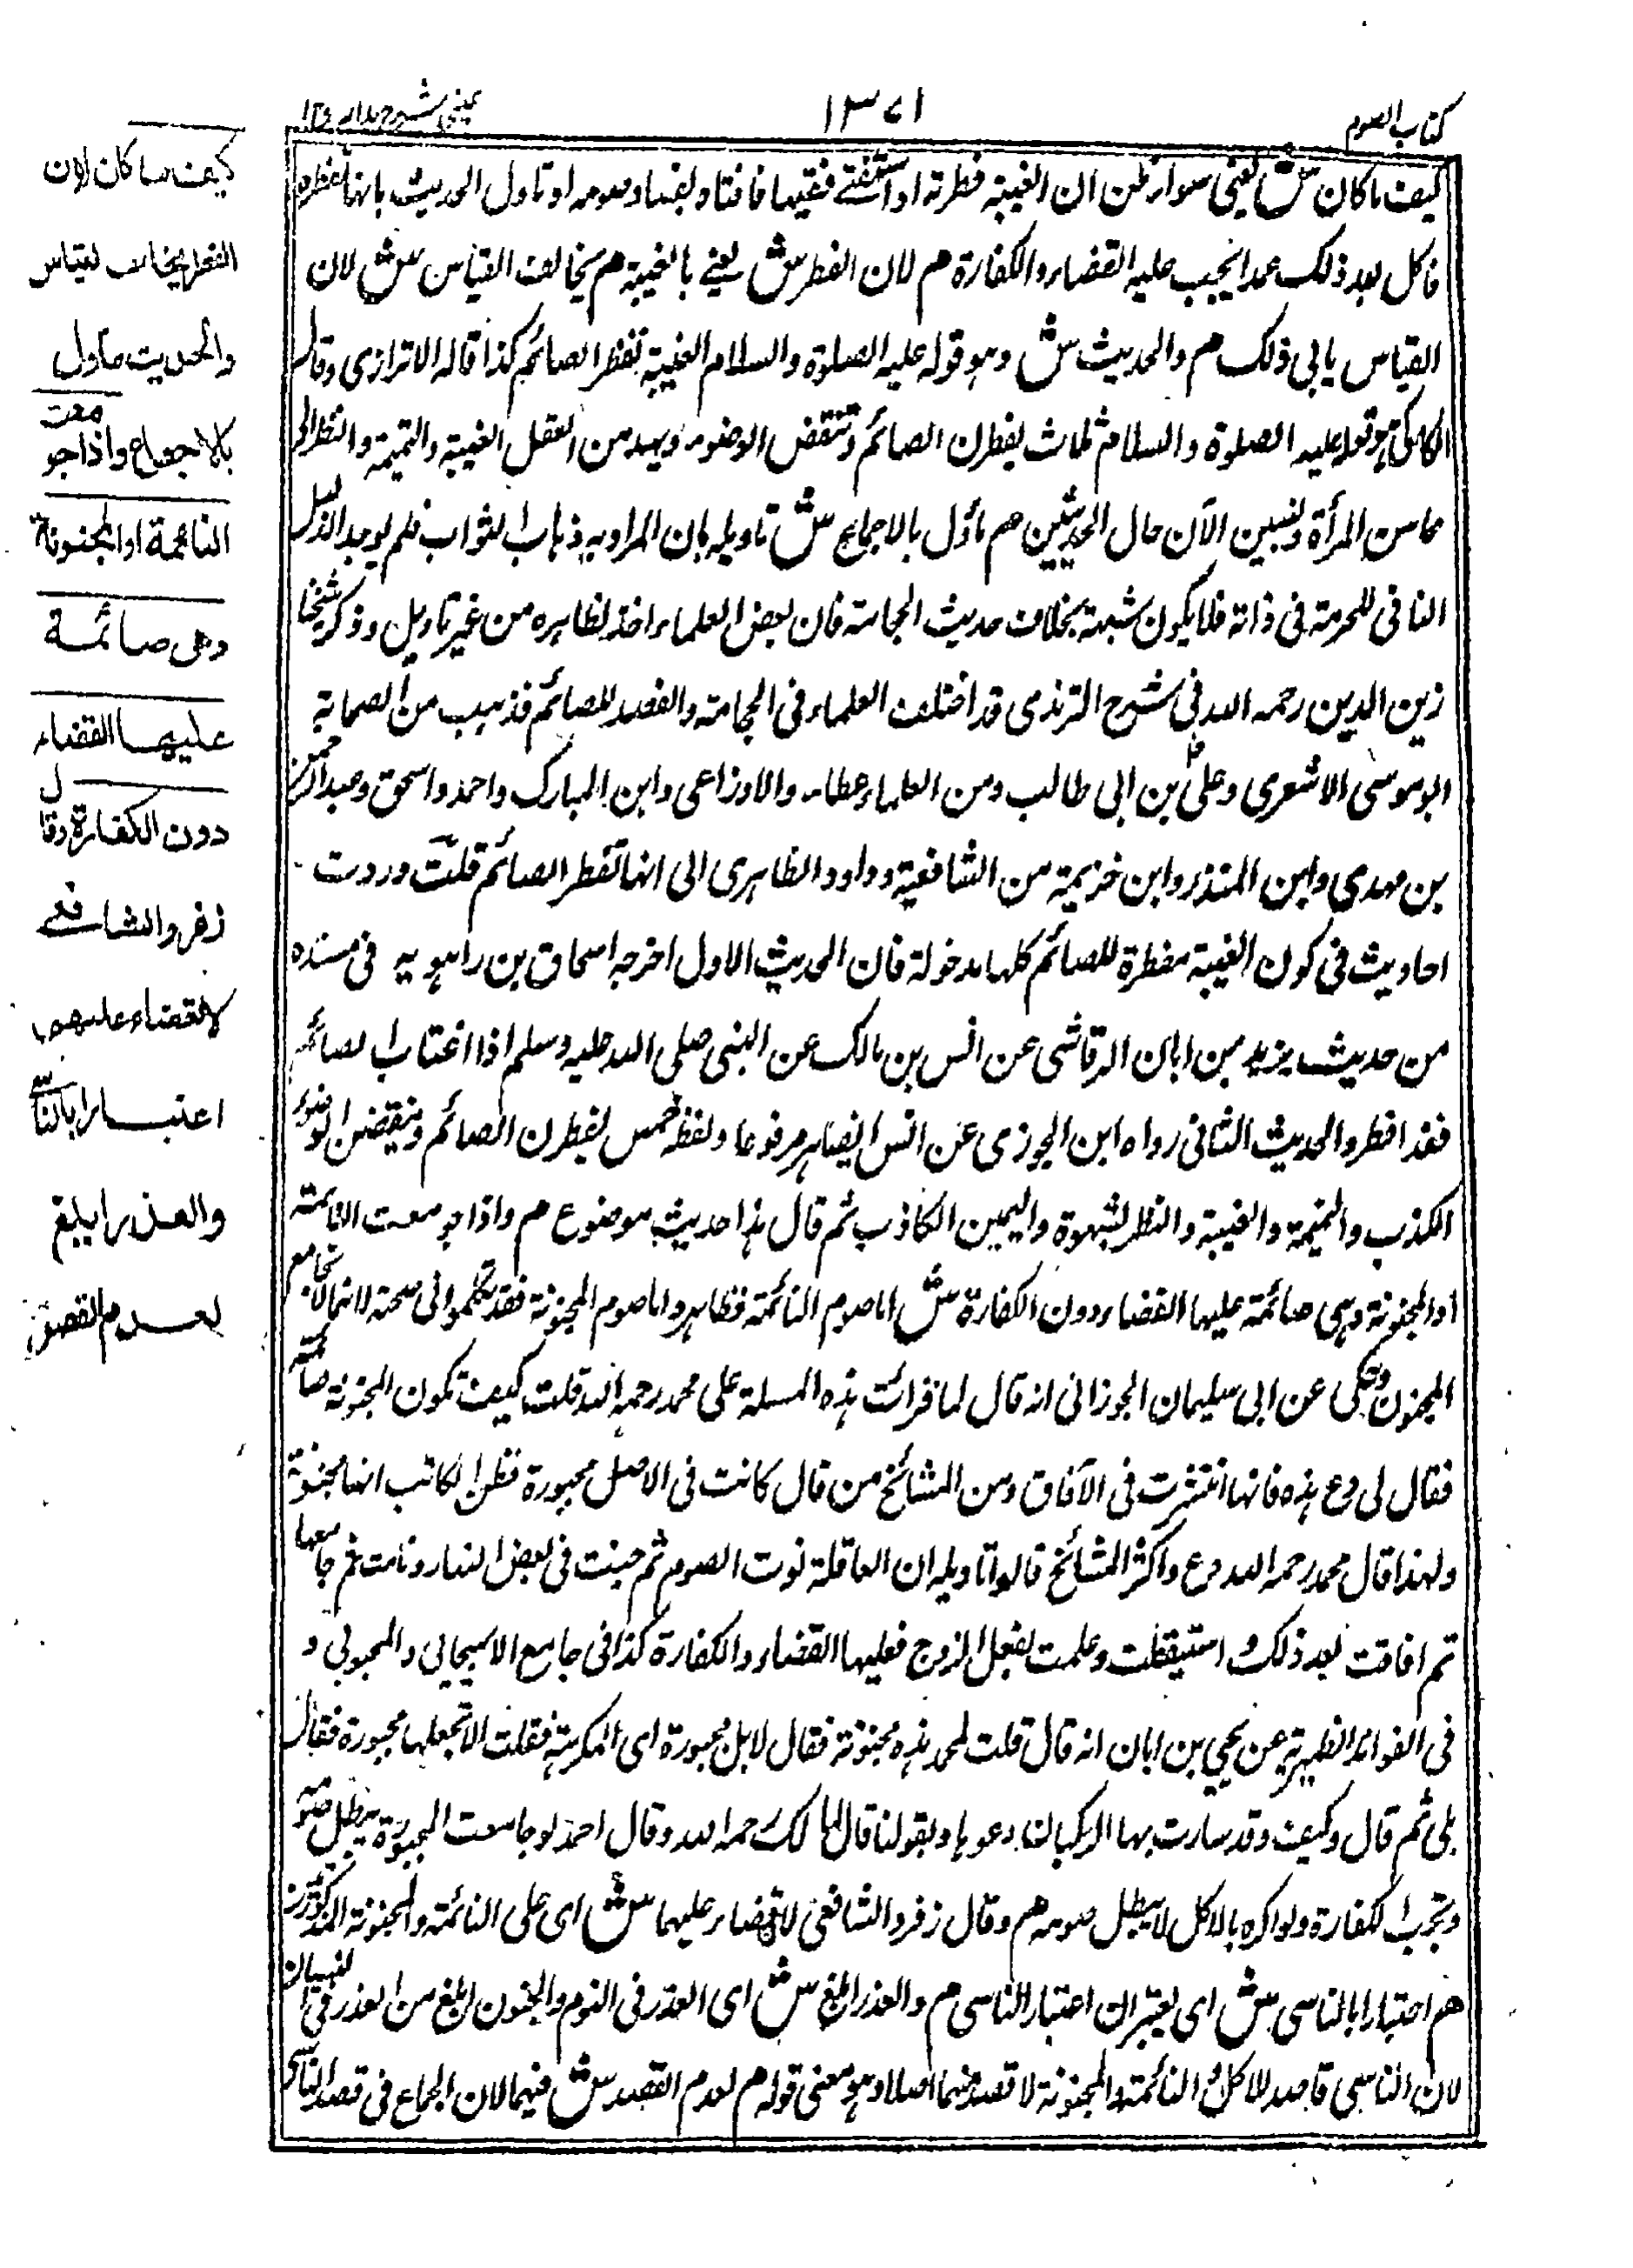 كتاب الصوم
١٣٧١
عينى شرح هدايه ج١
كيف ما كان ش يعنى سواء ظن ان الغيبة فطرته او استفتى فقيها فافتاه بفساد صومه او تاول الحديث بانها تفطره
فاكل بعد ذلك عمدا يجب عليه القضاء والكفارة م لان الفطر ش يعنى بالغيبة م يخالف القياس ش لان
القياس يابى ذلك م والحديث ش وهو قوله عليه الصلوة والسلام الغيبة تفطر الصائم كذا قاله الاترازى وقال
الكاكى هو قوله عليه الصلوة والسلام ثلاث يفطرن الصائم وتنقض الوضوء ويهدمن العقل الغيبة والنميمة والنظر الى
محاسن المرأة ونبين الآن حال الحديثين م مأول بالاجماع ش تاويله بان المراد به ذهاب الثواب فلم يوجد الدليل
النافى للحرمة فى ذاته فلا يكون شبهة بخلاف حديث الحجامة فان بعض العلماء اخذ بظاهره من غير تاويل وذكر شيخنا
زين الدين رحمه الله فى شرح الترمذى قد اختلف العلماء فى الحجامة والفصد للصائم فذهب من الصحابة
ابو موسى الاشعرى وعلى بن ابى طالب ومن العلماء عطاء والاوزاعى وابن المبارك واحمد واسحق وعبد الرحمن
بن مهدى وابن المنذر وابن خزيمة من الشافعية وداود الظاهرى الى انها تفطر الصائم قلت وردت
احاديث فى كون الغيبة مفطرة للصائم كلها مدخولة فان الحديث الاول اخرجه اسحاق بن راهويه فى مسنده
من حديث يزيد بن ابان الرقاشى عن انس بن مالك عن النبى صلى الله عليه وسلم اذا اغتاب الصائم
فقد افطر والحديث الثانى رواه ابن الجوزى عن انس ايضا مرفوعا ولفظه خمس يفطرن الصائم وينقضن الوضوء
الكذب والنميمة والغيبة والنظر بشهوة واليمين الكاذب ثم قال هذا حديث موضوع م واذا جومعت النائمة
او المجنونة وهى صائمة عليها القضاء دون الكفارة ش اما صوم النائمة فظاهر واما صوم المجنونة فقد تكلموا فى صحته لانها لا تجامع
الجنون وحكى عن ابى سليمان الجوزانى انه قال لما قرأت هذه المسئلة على محمد رحمه الله قلت كيف تكون المجنونة صائمة
فقال لى دع هذه فانها انتشرت فى الآفاق ومن المشائخ من قال كانت فى الاصل مجبورة فظن الكاتب انها مجنونة
ولهذا قال محمد رحمه الله دع واكثر المشائخ قالوا تاويله ان العاقلة نوت الصوم ثم جنت فى بعض النهار ونامت ثم جامعها
ثم افاقت بعد ذلك واستيقظت وعلمت بفعل الزوج فعليها القضاء والكفارة كذا فى جامع الاسبيجابى والمحبوبى و
فى الفوائد الظهيرية عن يحيى بن ابان انه قال قلت لمحمد هذه مجنونة فقال لا بل مجبورة اى المكرهة فقلت الا تجعلها مجبورة فقال
بلى ثم قال وكيف وقد سارت بها الركبان دعوها وبقولنا قال مالك رحمه الله وقال احمد لو جامعت المجبورة يبطل صومها
وتجب الكفارة ولو اكره بالاكل لا يبطل صومه م وقال زفر والشافعى لا قضاء عليهما ش اى على النائمة والمجنونة المذكورتين
م اعتبارا بالناسى ش اى يعتبران اعتبار الناسى م والعذر ابلغ ش اى العذر فى النوم والجنون ابلغ من العذر فى النسيان
لان الناسى قاصد للاكل والنائمة والمجنونة لا قصد منهما اصلا وهو معنى قوله م لعدم القصد ش فيهما لان الجماع فى قصد الناسى
كيف ما كان لان
الفطر يخالف القياس
والحديث ماول
بالاجماع واذا جومعت
النائمة او المجنونة
وهى صائمة
عليها القضاء
دون الكفارة وقال
زفر والشافعى
لا قضاء عليهما
اعتبارا بالناسى
والعذر ابلغ
لعدم القصد